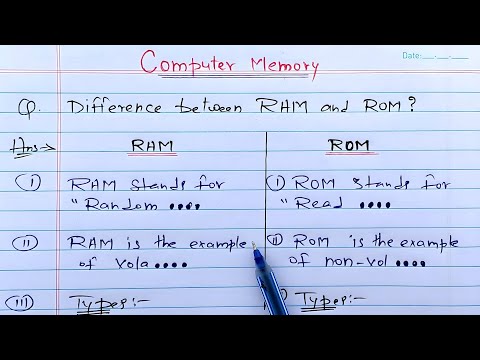 Computer Memory
Date:__.__.__
Q. Difference between RAM and ROM?
Ans→
RAM
ROM
(i) RAM stands for
"Random ....
(i) ROM stands for
"Read ....
(ii) RAM is the example
of vola....
(ii) ROM is the example
of non-vol....
(iii) Types:-
Types:-